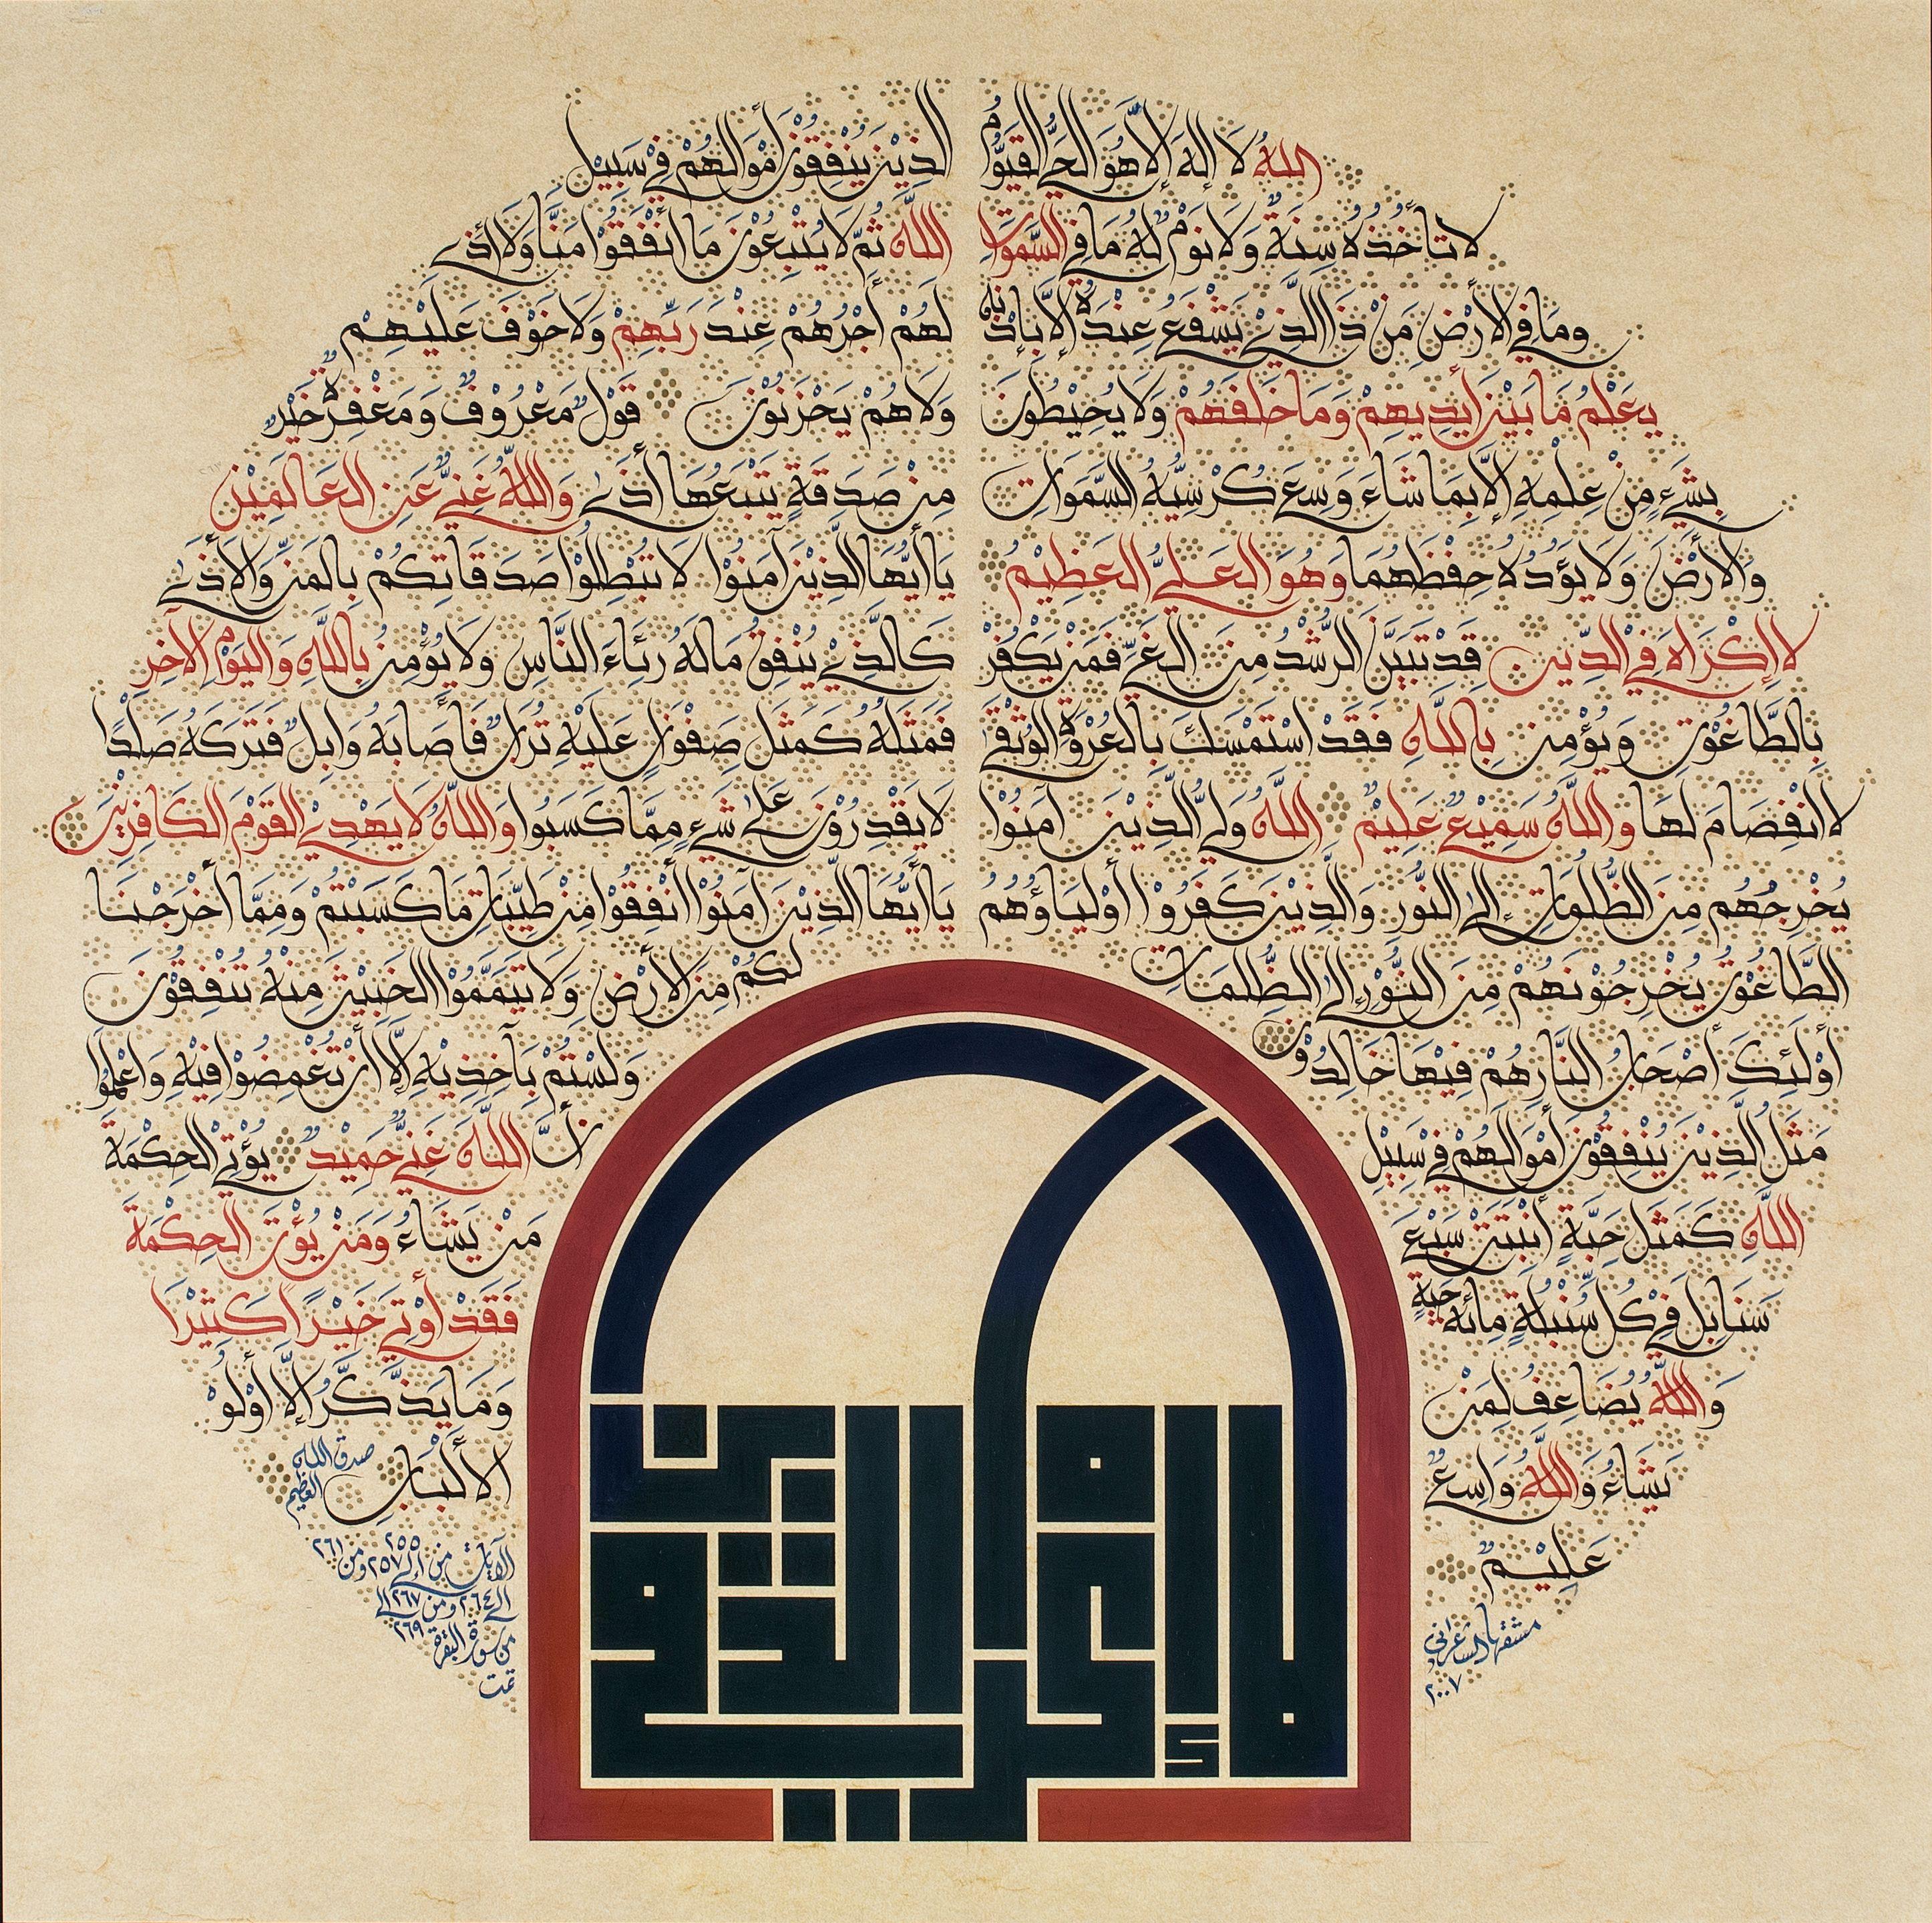 الله لا إله إلا هو الحي القيوم
لا تأخذه سنة ولا نوم له ما في السموات
وما في الأرض من ذا الذي يشفع عنده إلا بإذنه
يعلم ما بين أيديهم وما خلفهم ولا يحيطون
بشيء من علمه إلا بما شاء وسع كرسيه السموات
والأرض ولا يؤده حفظهما وهو العلي العظيم
لا إكراه في الدين قد تبين الرشد من الغي فمن يكفر
بالطاغوت ويؤمن بالله فقد استمسك بالعروة الوثقى
لا انفصام لها والله سميع عليم الله ولي الذين آمنوا
يخرجهم من الظلمات إلى النور والذين كفروا أولياؤهم
الطاغوت يخرجونهم من النور إلى الظلمات
أولئك أصحاب النار هم فيها خالدون
مثل الذين ينفقون أموالهم في سبيل
الله كمثل حبة أنبتت سبع
سنابل في كل سنبلة مائة حبة
والله يضاعف لمن
يشاء والله واسع
عليم
مشقها الشعراني
٢٠٠٧
الذين ينفقون أموالهم في سبيل
الله ثم لا يتبعون ما أنفقوا منا ولا أذى
لهم أجرهم عند ربهم ولا خوف عليهم
ولا هم يحزنون قول معروف ومغفرة خير
من صدقة يتبعها أذى والله غني عن العالمين
يا أيها الذين آمنوا لا تبطلوا صدقاتكم بالمن والأذى
كالذي ينفق ماله رئاء الناس ولا يؤمن بالله واليوم الآخر
فمثله كمثل صفوان عليه تراب فأصابه وابل فتركه صلدا
لا يقدرون على شيء مما كسبوا والله لا يهدي القوم الكافرين
يا أيها الذين آمنوا أنفقوا من طيبات ما كسبتم ومما أخرجنا
لكم من الأرض ولا تيمموا الخبيث منه تنفقون
ولستم بآخذيه إلا أن تغمضوا فيه واعلموا
أن الله غني حميد يؤتي الحكمة
من يشاء ومن يؤت الحكمة
فقد أوتي خيرا كثيرا
وما يذكر إلا أولو
الألباب صدق الله العظيم
الآيات من ٢٥٥ إلى ٢٥٧ ومن ٢٦١
إلى ٢٦٤ ومن ٢٦٧ إلى
٢٦٩ من سورة البقرة
تمت
لا إكراه في الدين